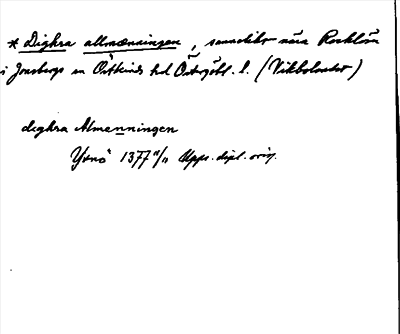 * Dighra allmænningen, sannolikt nära Rocklösa
i Jonsbergs sn Östkinds hd Östergötl. l. (Vikbolandet)
dighra Almenningen
Ysnö 1377 11/11 Upps. dipl. orig.